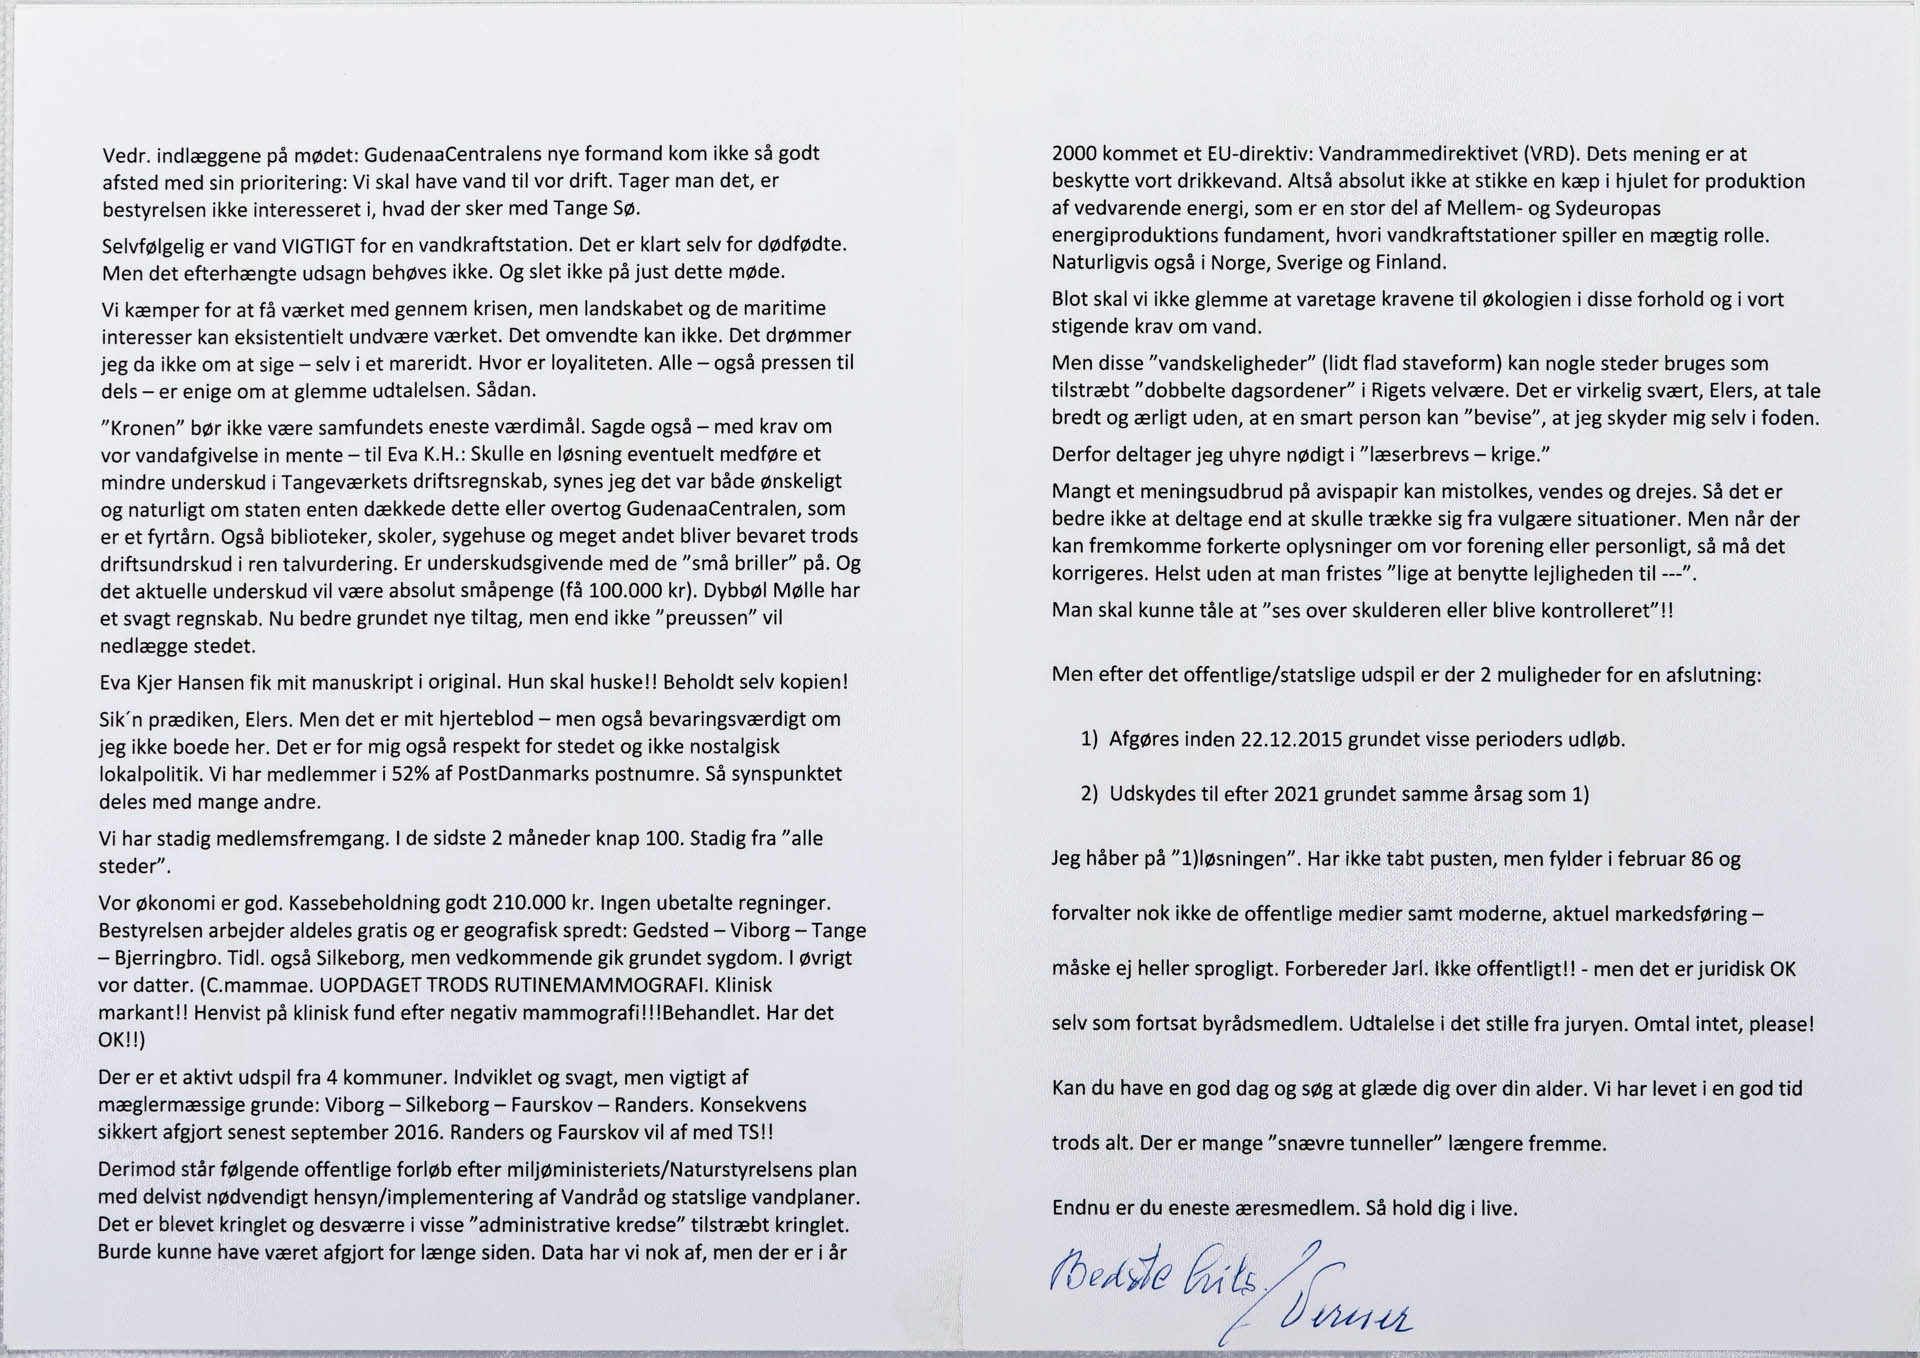 Vedr. indlæggene på mødet: GudenaaCentralens nye formand kom ikke så godt
afsted med sin prioritering: Vi skal have vand til vor drift. Tager man det, er
bestyrelsen ikke interesseret i, hvad der sker med Tange Sø.
Selvfølgelig er vand VIGTIGT for en vandkraftstation. Det er klart selv for dødfødte.
Men det efterhængte udsagn behøves ikke. Og slet ikke på just dette møde.
Vi kæmper for at få værket med gennem krisen, men landskabet og de maritime
interesser kan eksistentielt undvære værket. Det omvendte kan ikke. Det drømmer
jeg da ikke om at sige – selv i et mareridt. Hvor er loyaliteten. Alle – også pressen til
dels – er enige om at glemme udtalelsen. Sådan.
”Kronen” bør ikke være samfundets eneste værdimål. Sagde også – med krav om
vor vandafgivelse in mente – til Eva K.H.: Skulle en løsning eventuelt medføre et
mindre underskud i Tangeværkets driftsregnskab, synes jeg det var både ønskeligt
og naturligt om staten enten dækkede dette eller overtog GudenaaCentralen, som
er et fyrtårn. Også biblioteker, skoler, sygehuse og meget andet bliver bevaret trods
driftsundrskud i ren talvurdering. Er underskudsgivende med de ”små briller” på. Og
det aktuelle underskud vil være absolut småpenge (få 100.000 kr). Dybbøl Mølle har
et svagt regnskab. Nu bedre grundet nye tiltag, men end ikke ”preussen” vil
nedlægge stedet.
Eva Kjer Hansen fik mit manuskript i original. Hun skal huske!! Beholdt selv kopien!
Sik´n prædiken, Elers. Men det er mit hjerteblod – men også bevaringsværdigt om
jeg ikke boede her. Det er for mig også respekt for stedet og ikke nostalgisk
lokalpolitik. Vi har medlemmer i 52% af PostDanmarks postnumre. Så synspunktet
deles med mange andre.
Vi har stadig medlemsfremgang. I de sidste 2 måneder knap 100. Stadig fra ”alle
steder”.
Vor økonomi er god. Kassebeholdning godt 210.000 kr. Ingen ubetalte regninger.
Bestyrelsen arbejder aldeles gratis og er geografisk spredt: Gedsted – Viborg – Tange
– Bjerringbro. Tidl. også Silkeborg, men vedkommende gik grundet sygdom. I øvrigt
vor datter. (C.mammae. UOPDAGET TRODS RUTINEMAMMOGRAFI. Klinisk
markant!! Henvist på klinisk fund efter negativ mammografi!!!Behandlet. Har det
OK!!)
Der er et aktivt udspil fra 4 kommuner. Indviklet og svagt, men vigtigt af
mæglermæssige grunde: Viborg – Silkeborg – Faurskov – Randers. Konsekvens
sikkert afgjort senest september 2016. Randers og Faurskov vil af med TS!!
Derimod står følgende offentlige forløb efter miljøministeriets/Naturstyrelsens plan
med delvist nødvendigt hensyn/implementering af Vandråd og statslige vandplaner.
Det er blevet kringlet og desværre i visse ”administrative kredse” tilstræbt kringlet.
Burde kunne have været afgjort for længe siden. Data har vi nok af, men der er i år
2000 kommet et EU-direktiv: Vandrammedirektivet (VRD). Dets mening er at
beskytte vort drikkevand. Altså absolut ikke at stikke en kæp i hjulet for produktion
af vedvarende energi, som er en stor del af Mellem- og Sydeuropas
energiproduktions fundament, hvori vandkraftstationer spiller en mægtig rolle.
Naturligvis også i Norge, Sverige og Finland.
Blot skal vi ikke glemme at varetage kravene til økologien i disse forhold og i vort
stigende krav om vand.
Men disse ”vandskeligheder” (lidt flad staveform) kan nogle steder bruges som
tilstræbt ”dobbelte dagsordener” i Rigets velvære. Det er virkelig svært, Elers, at tale
bredt og ærligt uden, at en smart person kan ”bevise”, at jeg skyder mig selv i foden.
Derfor deltager jeg uhyre nødigt i ”læserbrevs – krige.”
Mangt et meningsudbrud på avispapir kan mistolkes, vendes og drejes. Så det er
bedre ikke at deltage end at skulle trække sig fra vulgære situationer. Men når der
kan fremkomme forkerte oplysninger om vor forening eller personligt, så må det
korrigeres. Helst uden at man fristes ”lige at benytte lejligheden til ---”.
Man skal kunne tåle at ”ses over skulderen eller blive kontrolleret”!!
Men efter det offentlige/statslige udspil er der 2 muligheder for en afslutning:
1) Afgøres inden 22.12.2015 grundet visse perioders udløb.
2) Udskydes til efter 2021 grundet samme årsag som 1)
Jeg håber på ”1)løsningen”. Har ikke tabt pusten, men fylder i februar 86 og
forvalter nok ikke de offentlige medier samt moderne, aktuel markedsføring –
måske ej heller sprogligt. Forbereder Jarl. Ikke offentligt!! - men det er juridisk OK
selv som fortsat byrådsmedlem. Udtalelse i det stille fra juryen. Omtal intet, please!
Kan du have en god dag og søg at glæde dig over din alder. Vi har levet i en god tid
trods alt. Der er mange ”snævre tunneller” længere fremme.
Endnu er du eneste æresmedlem. Så hold dig i live.
Bedste hils./Verner